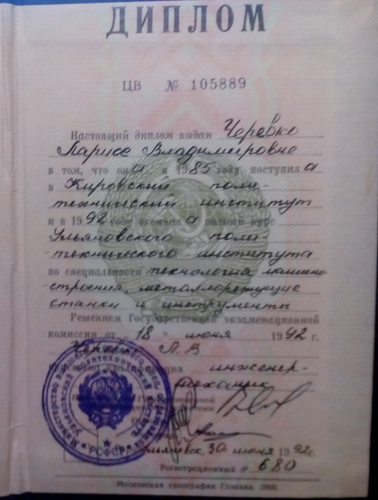 ДИПЛОМ
ЦВ № 105889
Настоящий диплом выдан Черевко
Ларисе Владимировне
в том, что она в 1985 году поступила
в Кировский поли-
технический институт
и в 1992 году окончила полный курс
Ульяновского поли-
технического института
по специальности технология машино-
строения, металлорежущие
станки и инструменты
Решением Государственной экзаменационной
комиссии от " 18 " июня 1992 г.
Л.В
квалификация инженер-
механик
Ульяновск 30 июня 1992г.
Регистрационный № 680
Московская типография Гознака. 1990.
РСФСР